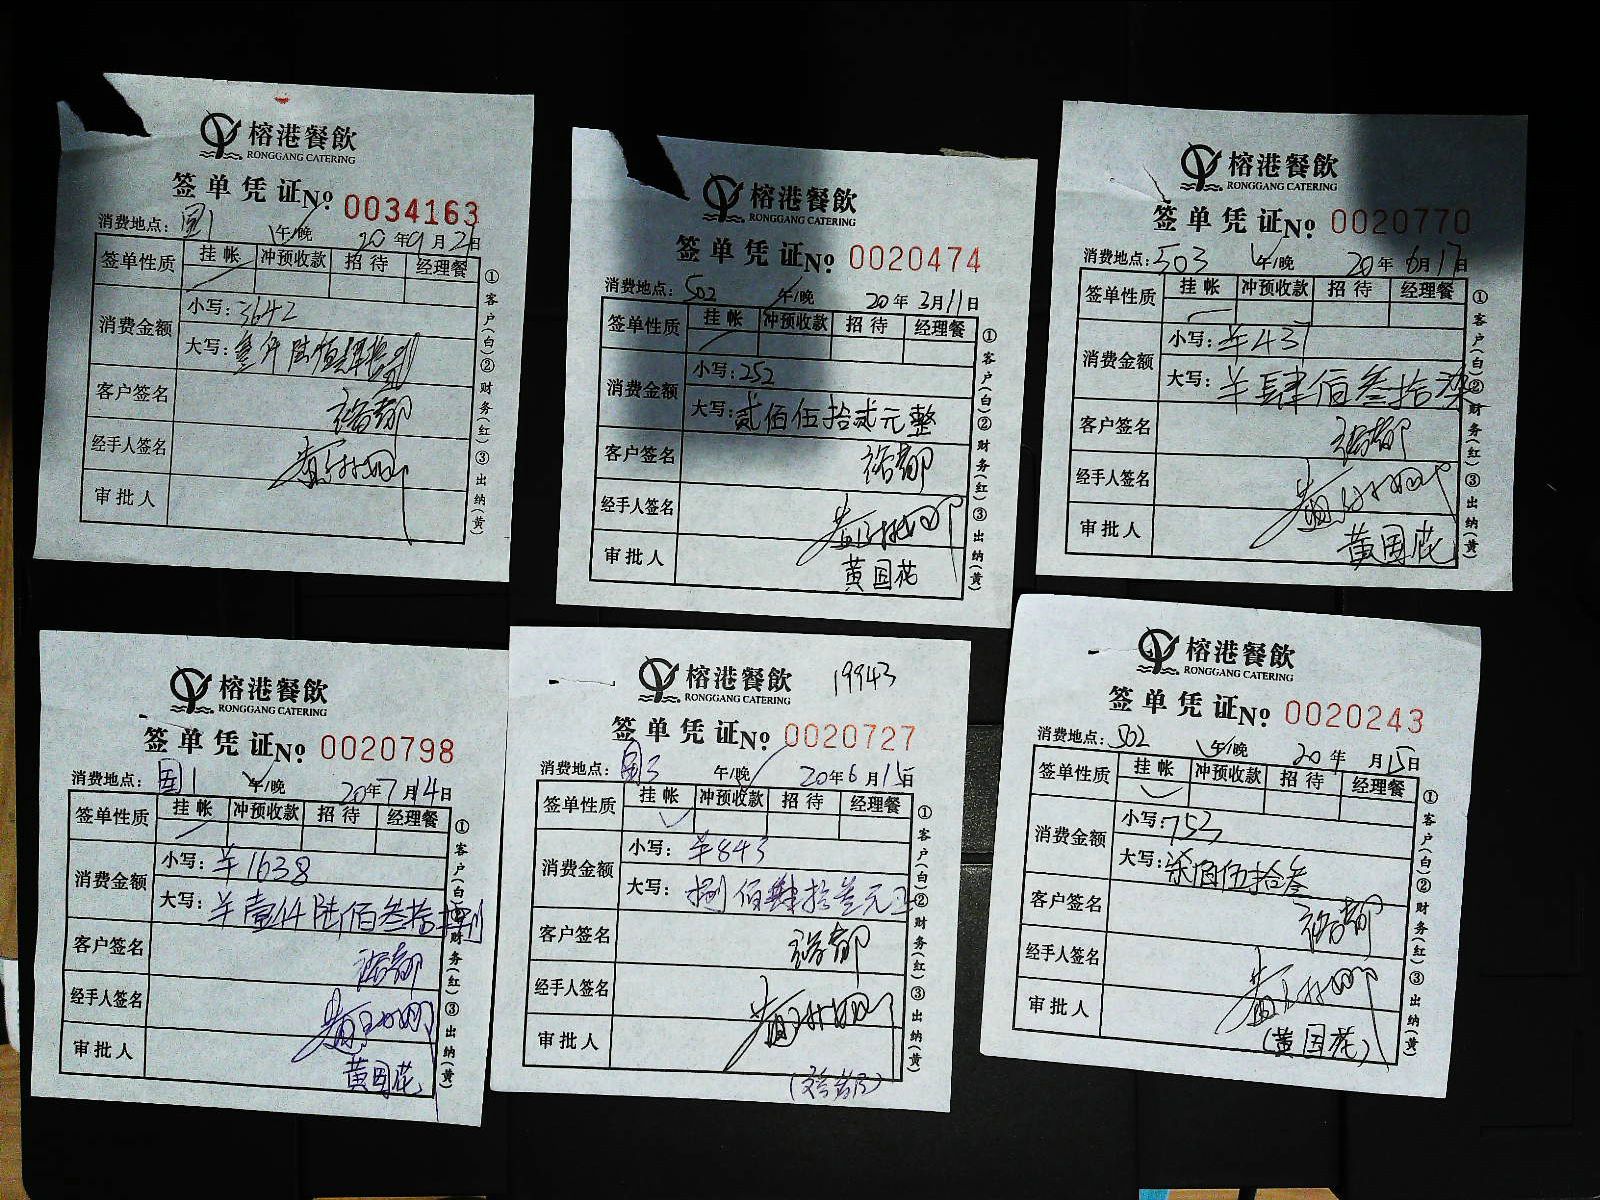 榕港餐飲
RONGGANG CATERING
签单凭证 No 0034163
消费地点: 国1 午/晚 20年9月2日
签单性质 挂帐 冲预收款 招待 经理餐
消费金额 小写: 3642
大写: 叁仟陆佰肆拾
客户签名
经手人签名
审批人
①客户(白)②财务(红)③出纳(黄)
榕港餐飲
RONGGANG CATERING
签单凭证 No 0020474
消费地点: 502 午/晚 20年3月11日
签单性质 挂帐 冲预收款 招待 经理餐
消费金额 小写: 252
大写: 贰佰伍拾贰元整
客户签名
经手人签名
审批人 黄国花
①客户(白)②财务(红)③出纳(黄)
榕港餐飲
RONGGANG CATERING
签单凭证 No 0020770
消费地点: 503 午/晚 20年6月17日
签单性质 挂帐 冲预收款 招待 经理餐
消费金额 小写: ¥437
大写: ¥肆佰叁拾柒
客户签名
经手人签名
审批人 黄国花
①客户(白)②财务(红)③出纳(黄)
榕港餐飲
RONGGANG CATERING
签单凭证 No 0020798
消费地点: 国1 午/晚 20年7月14日
签单性质 挂帐 冲预收款 招待 经理餐
消费金额 小写: ¥1638
大写: ¥壹仟陆佰叁拾捌
客户签名
经手人签名
审批人 黄国花
①客户(白)②财务(红)③出纳(黄)
榕港餐飲 19943
RONGGANG CATERING
签单凭证 No 0020727
消费地点: 国3 午/晚 20年6月15日
签单性质 挂帐 冲预收款 招待 经理餐
消费金额 小写: ¥843
大写: 捌佰肆拾叁元
客户签名
经手人签名
审批人
①客户(白)②财务(红)③出纳(黄)
榕港餐飲
RONGGANG CATERING
签单凭证 No 0020243
消费地点: 502 午/晚 20年 月15日
签单性质 挂帐 冲预收款 招待 经理餐
消费金额 小写: 753
大写: 柒佰伍拾叁
客户签名
经手人签名
审批人 (黄国花)
①客户(白)②财务(红)③出纳(黄)